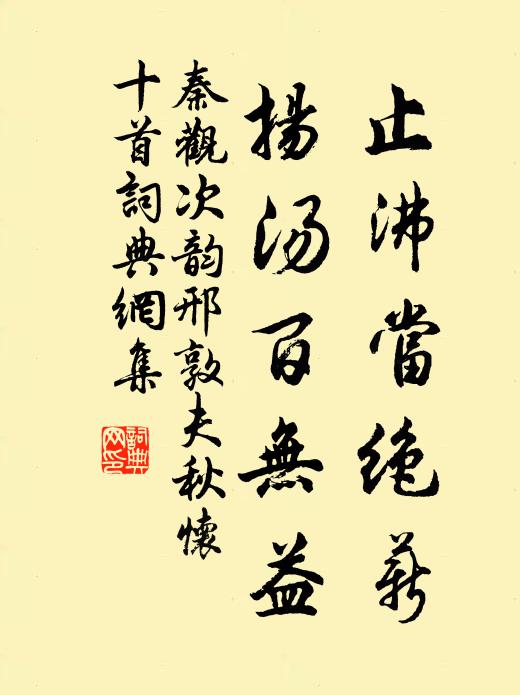 止沸當絶薪
揚湯百無益
秦觀次韵邢敦夫秋懷
十首詞典網集
詞典
网印